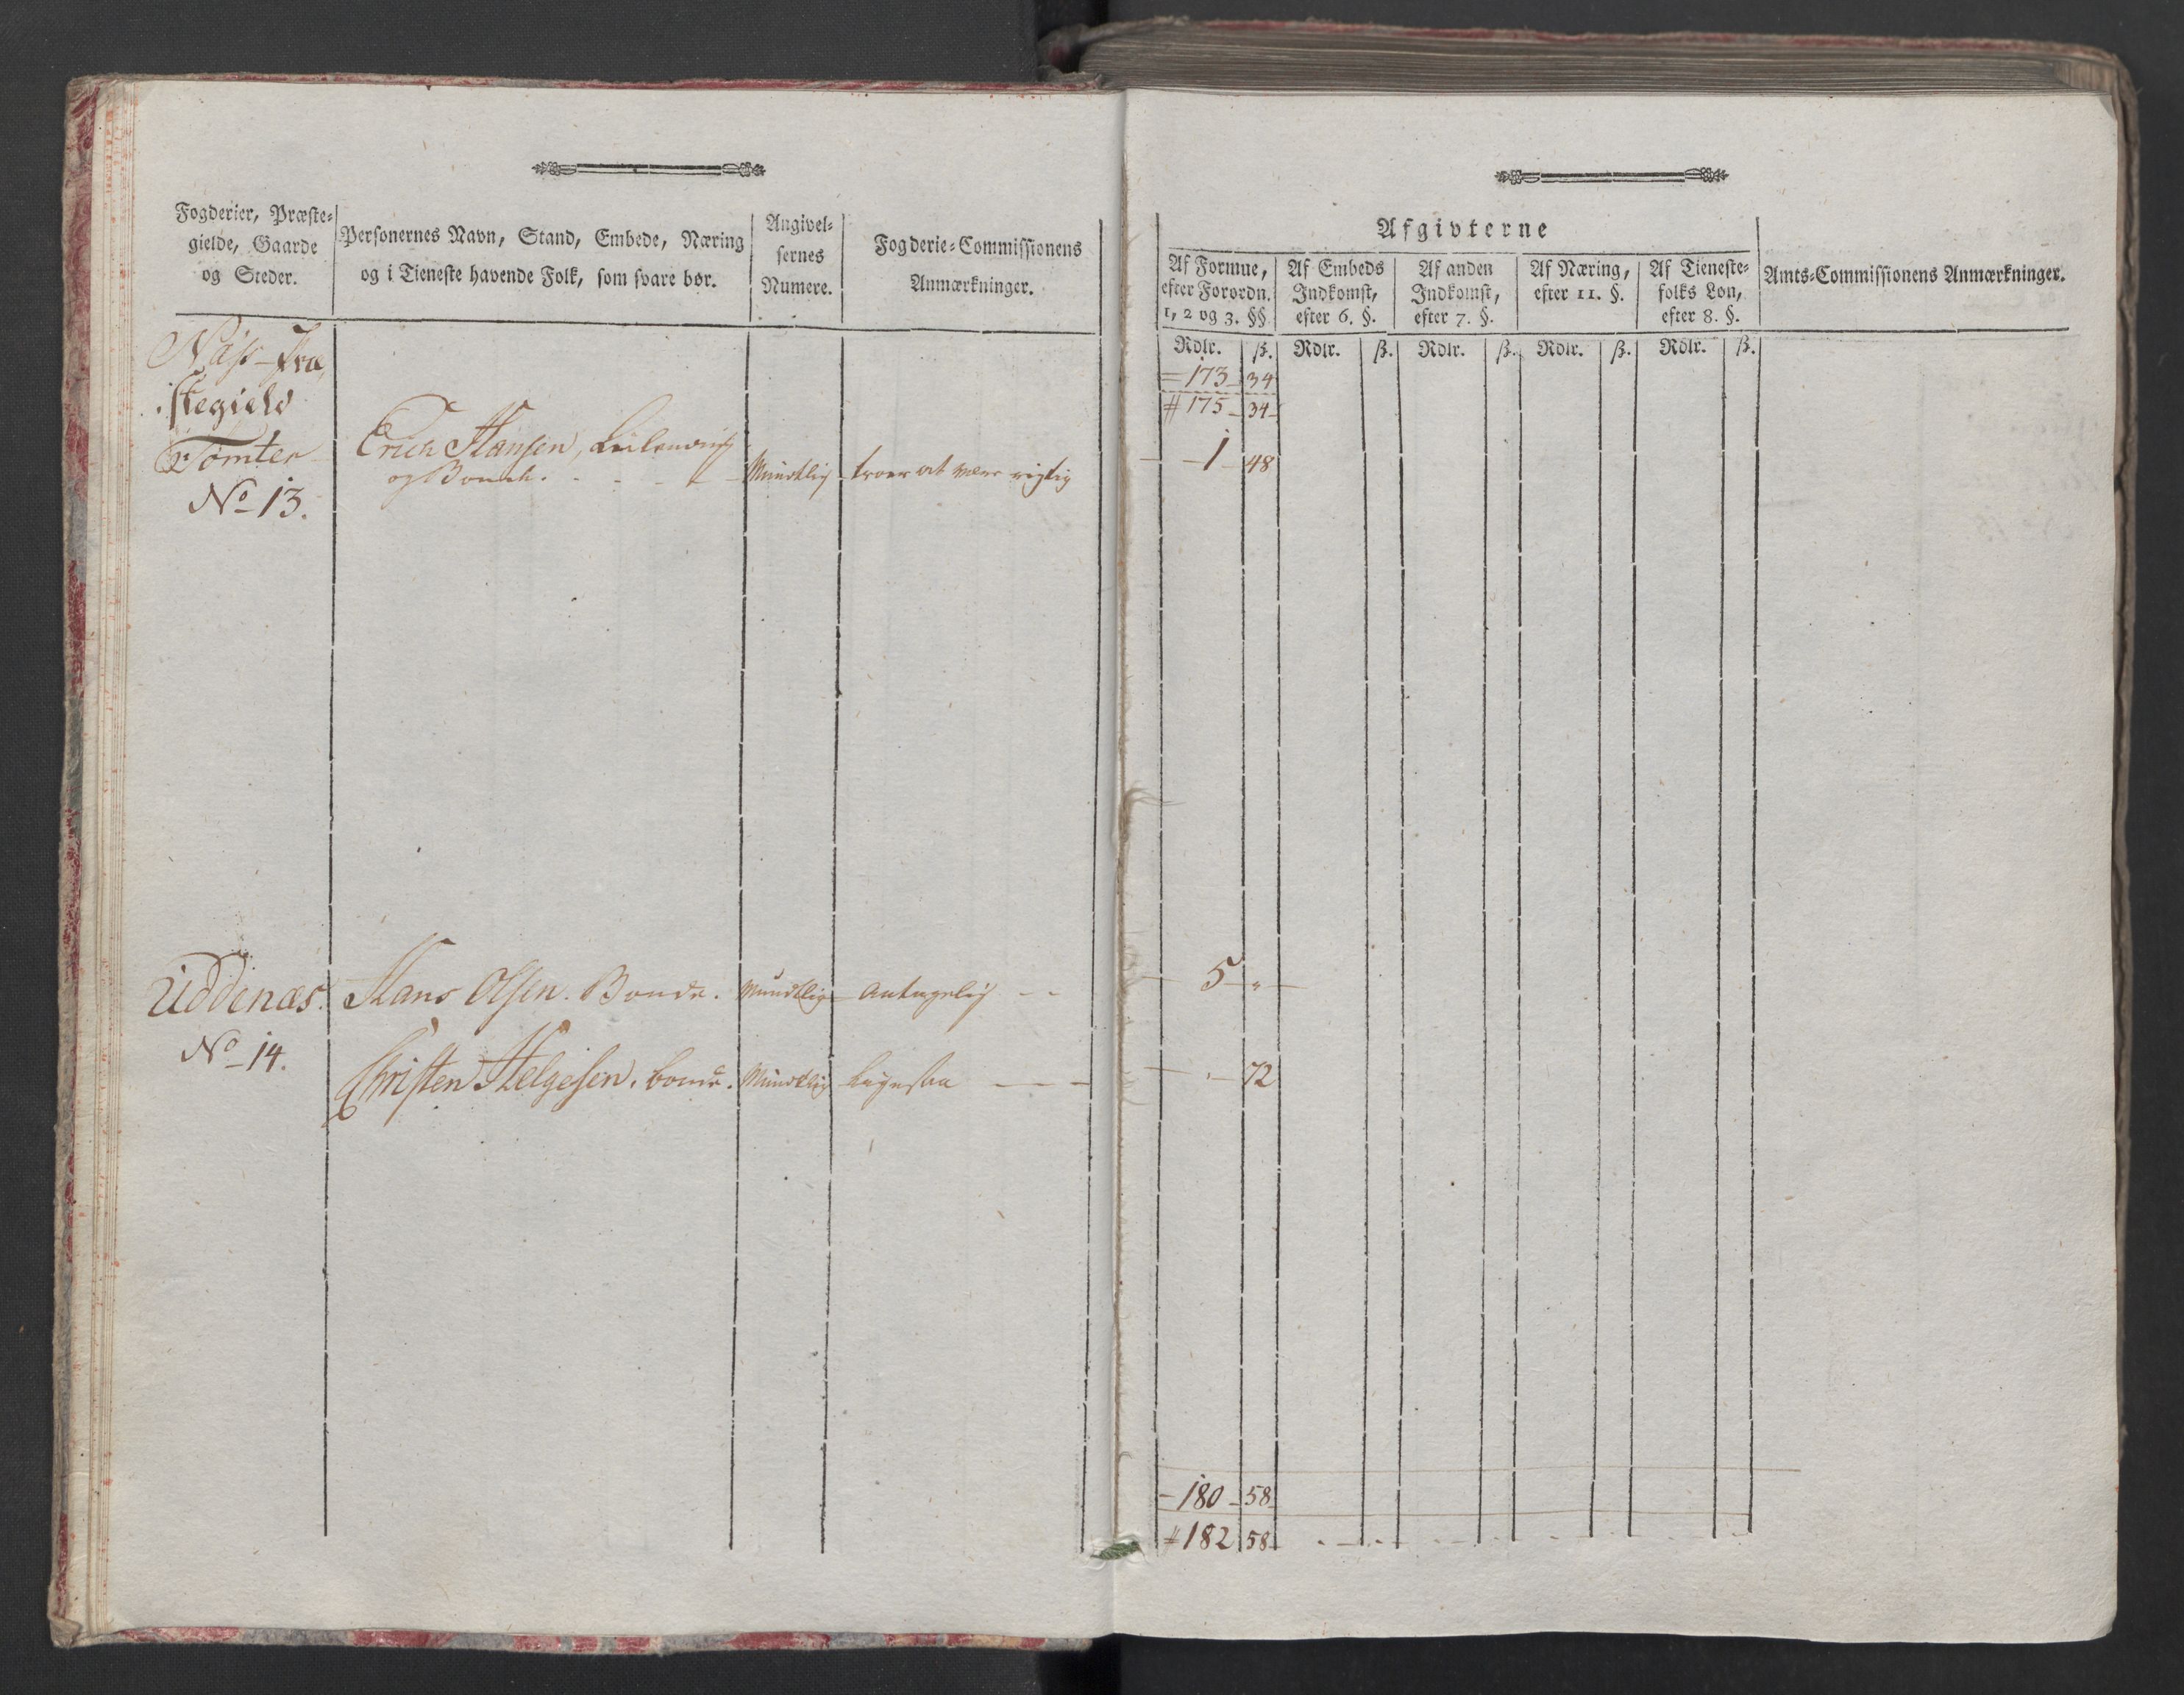 Fogderier, Præste-
gielde, Gaarde
og Steder.
Personernes Navn, Stand, Embede, Næring
og i Tieneste havende Folk, som svare bør.
Angivel-
sernes
Numere.
Fogderie-Commissionens
Anmærkninger.
Næss-Præ-
stegield
Tomter
No 13.
Erich Hansen,
og Bonde.
Mundtlig
troer at være rigtig
Uddenæs.
No 14.
Hans Olsen. Bonde.
Mundtlig
Antagelig
Christen Helgesen. bonde.
Mundtlig
Ligesaa
Afgivterne
Af Formue,
efter Forordn.
1, 2 og 3. §§
Af Embeds
Indkomst,
efter 6. §.
Af anden
Indkomst,
efter 7. §.
Af Næring,
efter 11. §.
Af Tieneste-
folks Løn,
efter 8. §.
Amts-Commissionens Anmærkninger.
Rdlr. ß. Rdlr. ß. Rdlr. ß. Rdlr. ß. Rdlr. ß.
= 173 34
# 175 34
- 1 48
5 "
" 72
- 180 58
# 182 58